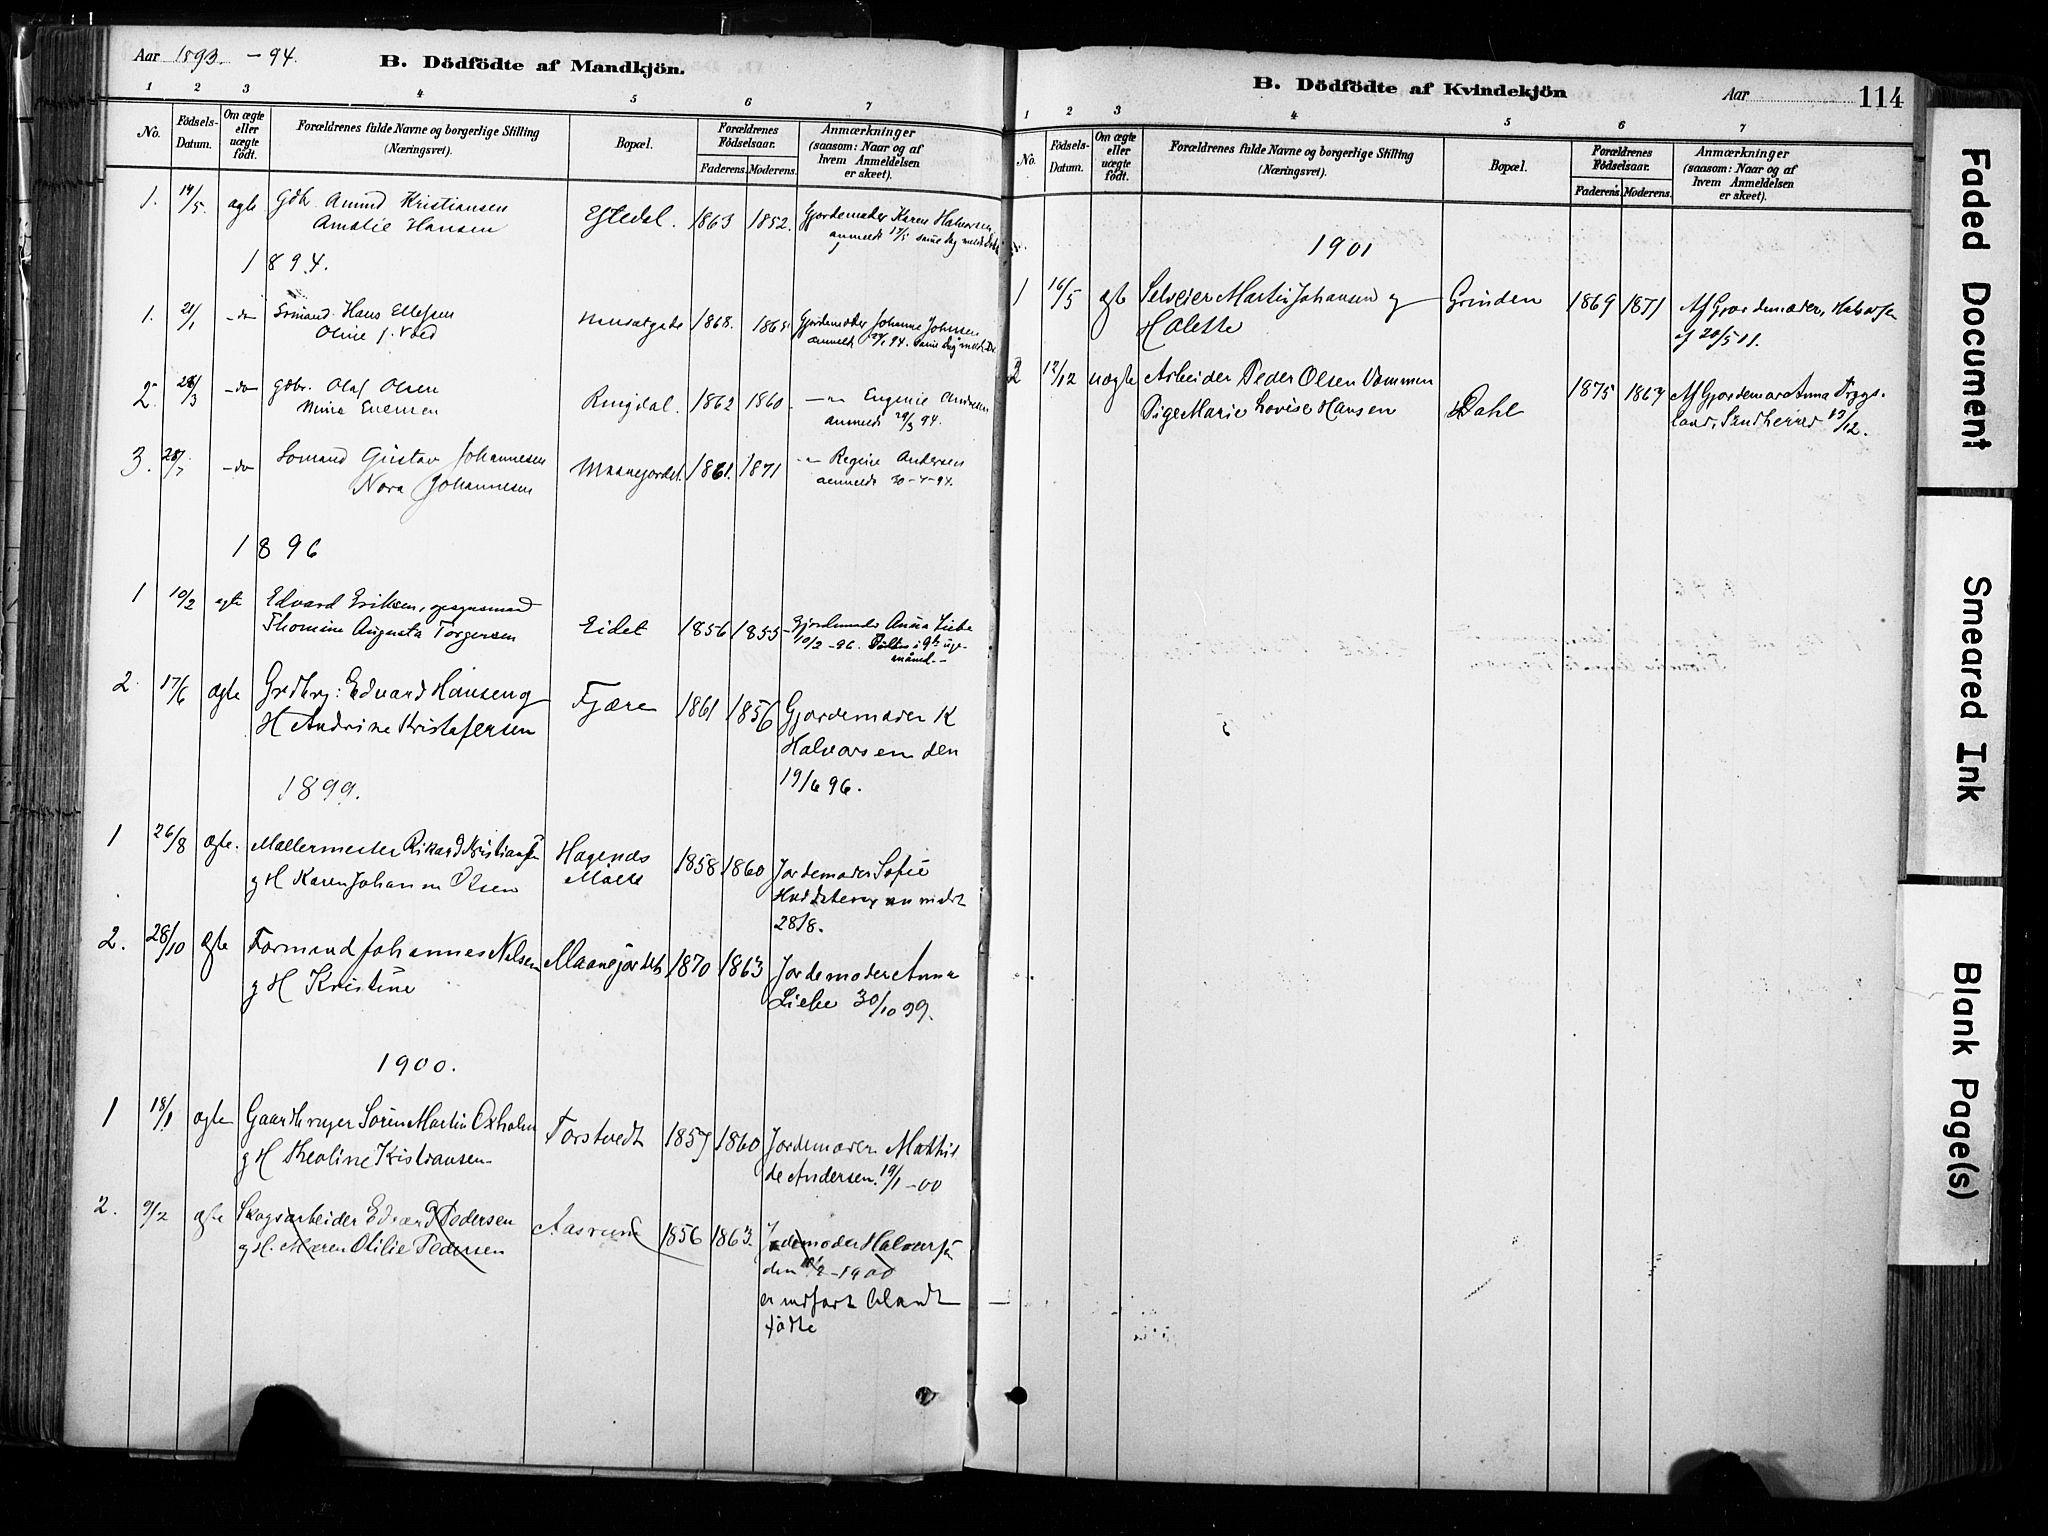 Aar 1893 - 94.
B. Dödfödte af Mandkjön.
1 2 3 4 5 6 7
No.
Födsels-Datum.
Om ægte eller uægte födt.
Forældrenes fulde Navne og borgerlige Stilling (Næringsvei).
Bopæl.
Forældrenes Födselsaar.
Faderens. Moderens.
Anmærkninger (saasom: Naar og af hvem Anmeldelsen er skeet).
1. 14/5. ægte Gdbr. Amund Kristiansen
Amalie Hansen
Eftedal. 1863 1852. Gjordemoder Karen Halvorsen
anmeldt 17/5 samme dag
1894.
1. 21/1 - do Sömand Hans Ellefsen
1868. 1865. Gjordemoder Johanne Johnsen
anmeldt
2. 28/3 - do gdbr. Olaf Olsen
Ringdal. 1862 1860. - " - Eugenie Andersen
anmeldt 29/3 94.
3. 28/7 - do Sömand Gustav Johannesen
Nora Johannesen
Maanejordet 1861. 1871 - " - Regine Andersen
anmeldt 30-7-94.
1896
1 10/2 ægte Edvard Eriksen,
Thomine Augusta Torgersen
Eidet 1856 1855 Gjordemoder Anna Liebe
10/2 - 96.
2 17/6 ægte Grdbrg: Edvard Hansen og
H Andrine Kristofersen
Fjære 1861 1856 Gjordemoder K
Halvorsen den
19/6 96.
1899.
1 26/8 ægte. Møllermester Rikard Kristiansen
g H Karen Johanne Olsen
Hagenes
Mølle
1858 1860 Jordemoder Sofie
anmeldt
28/8.
2. 28/10 ægte Formand Johannes Nilsen
g H Kristine
Maanejordet 1870 1863 Jordemoder Anna
Liebe 30/10 99.
1900.
1 18/1 ægte Gaardbruger Sören Martin Oxholm
g H Theoline Kristiansen
Torstvedt 1857 1860 Jordemoder Mathil
de Andersen. 19/1 -00
2. 9/2 ægte Skogsarbeider Edvard Pedersen
g H. Maren Otilie Pedersen
Aasrum 1856 1863. Jordemoder Halvorsen
den 10/2 - 1900
er indført blandt
födte
B. Dödfödte af Kvindekjön
Aar
114
1 2 3 4 5 6 7
No.
Födsels-Datum.
Om ægte eller uægte födt.
Forældrenes fulde Navne og borgerlige Stilling (Næringsvei).
Bopæl.
Forældrenes Födselsaar.
Faderens. Moderens.
Anmærkninger (saasom: Naar og af hvem Anmeldelsen er skeet).
1901
1 16/5 ægte Selveier Martin Johansen og
Halette
Grinden 1869 1871 Af Gjordemoder Halvorsen
20/5 01.
2 12/12 uægte Arbeider Peder Olsen Vommen
Pige Marie Lovise Hansen
Dahl 1875 1867 Af Gjordemor Anna Trygs-
land, Sandherred 19/12.
Faded Document
Smeared Ink
Blank Page(s)